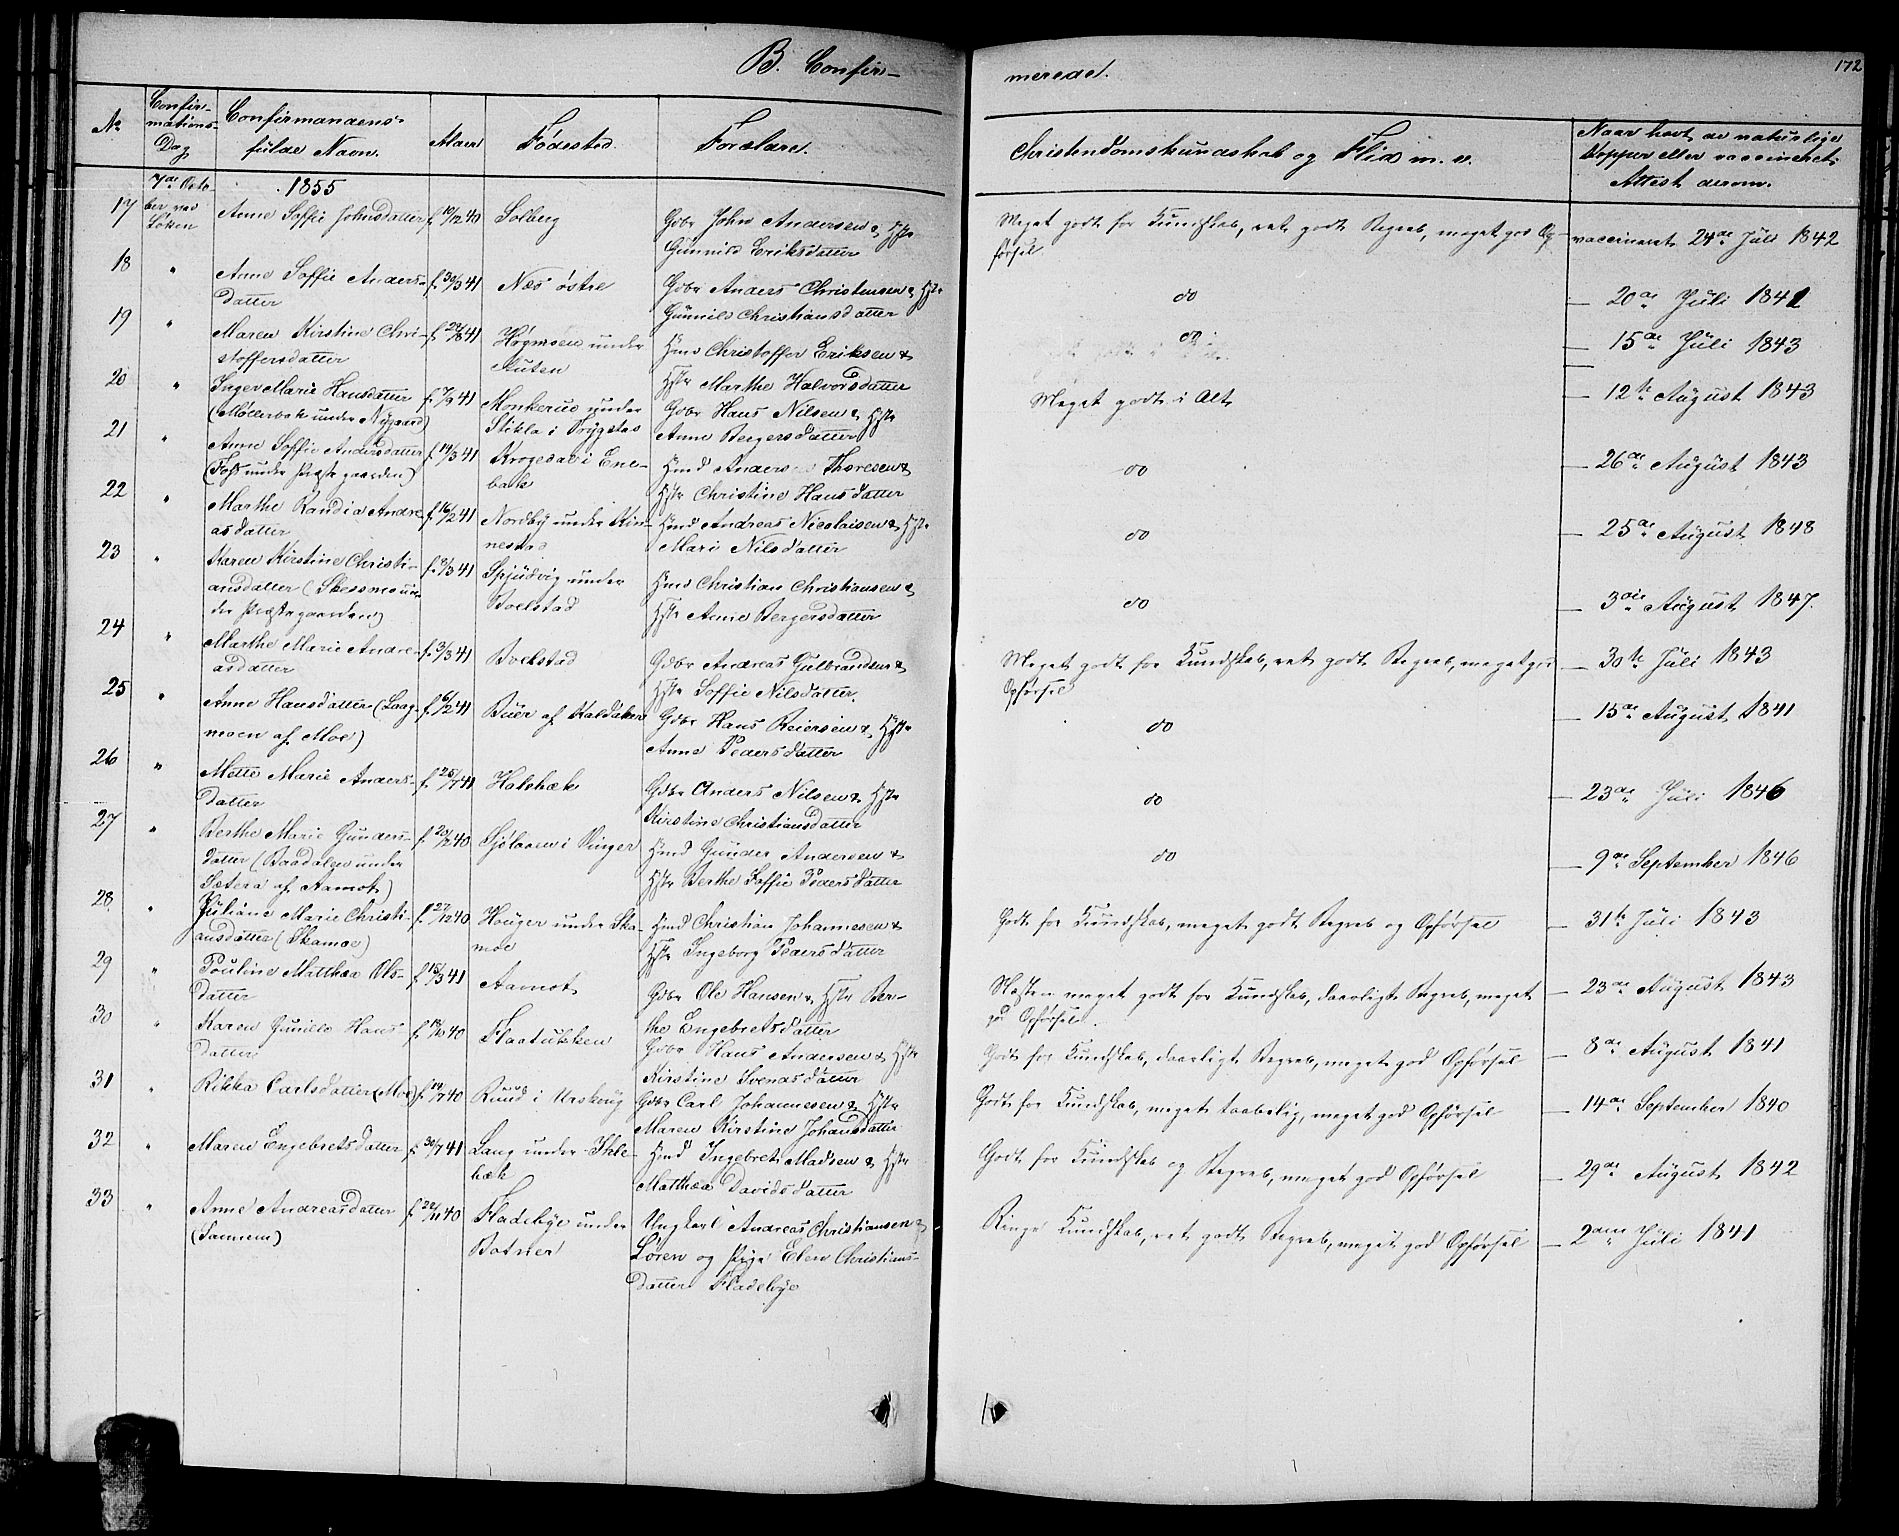 B. Confir-
merede.
172
No
Confir-
mations-
Dag
Confirmandens
fulde Navn.
Alder
Fødested.
Forældre.
Christendomskundskab og Flid m. v.
Naar havt de naturlige
Kopper eller vaccineret.
Attest derom.
7de Octo-
ber ved
Løken
1855
17 Anne Soffie Johnsdatter f. 10/12 40 Solberg Gdbr John Andersen & Hstr
Gunnild Eriksdatter
Meget godt for Kundskab, ret godt Begreb, meget god Op-
førsel
vaccineret 24de Juli 1842
18 " Anne Soffie Anders-
datter f. 30/3 41 Næs østre Gdbr Anders Christensen & Hstr
Gunnild Christiansdatter
do
— 20de Juli 1841
19 " Maren Kirstine Chri-
stoffersdatter f. 28/8 41 under
Auten Hmd Christoffer Eriksen &
Hstr Marthe Halvorsdatter
do
— 15de Juli 1843
20 " Inger Marie Hansdatter
(Møllerbak under Nygaard) f. 7/9 41 Monkerud under
Stikla i Trygstad Gdbr Hans Nilsen & Hstr
Anne Bergersdatter
Meget godt i Alt
— 12te August 1843
21 " Anne Soffie Andersdatter
(Foss under Præstegaarden) f. 19/3 41 Krogedal i Ene-
bak Hmd Anders Thoresen &
Hstr Christine Hansdatter
do
— 26de August 1843
22 " Marthe Randia Andre-
asdatter f. 16/2 41 Nordby under Kin-
nestad Hmd Andreas Nicolaisen & Hstr
Mari Nilsdatter
do
— 25de August 1848
23 " Karen Kirstine Christi-
ansdatter (Skessmo un-
der Præstegaarden) f. 9/3 41 Spjudvig under
Boelstad Hmd Christian Christiansen &
Hstr Anne Bergersdatter
do
— 3die August 1847.
24 " Marthe Marie Andre-
asdatter f. 3/3 41 Boelstad Gdbr Andreas Gulbrandsen &
Hstr Soffie Nilsdatter
Meget godt for Kundskab, ret godt Begreb, meget god
Opførsel
— 30te Juli 1843
25 " Anne Hansdatter (Laag-
moen af Moe) f. 6/2 41 Buer af Kaldaker Gdbr Hans Reiersen & Hstr
Anne Pedersdatter
do
— 15de August 1841
26 " Mette Marie Anders-
datter f. 25/7 41 Holsbæk Gdbr Anders Nilsen & Hstr
Kirstine Christiansdatter
do
— 23de Juli 1846
27 " Berthe Marie Gunders-
datter (Baadalgen under
Sætera af Aamot) f. 23/12 40 Sjølaasen i Vinger Hmd Gunder Andersen &
Hstr Berthe Soffie Pedersdatter
do
— 9de September 1846
28 " Juliane Marie Christi-
ansdatter (Skamoe) f. 27/12 40 Houger under Ska-
moe Hmd Christian Johannesen &
Hstr Ingeborg Pedersdatter
Godt for Kundskab, meget godt Begreb og Opførsel
— 31te Juli 1843
29 " Pouline Matthea Ols-
datter f. 15/3 41 Aamot Gdbr Ole Hansen & Hstr Ber-
the Engebretsdatter
Næsten meget godt for Kundskab, daarligt Begreb, meget
god Opførsel.
— 23de August 1843
30 " Karen Gunilde Hans
datter f. 18/10 40 Flaatukken Gdbr Hans Andersen & Hstr
Kirstine Svendsdatter
Godt for Kundskab, daarligt Begreb, meget god Opførsel
— 8de August 1841
31 " Rikka Carlsdatter (Moe) f. 19/7 40 Ruud i Urskoug Gdbr Carl Johannesen & Hstr
Maren Kirstine Johansdatter
Godt for Kundskab, meget taabelig, meget god Opførsel
— 14de September 1840
32 " Maren Engebretsdatter f. 30/7 41 Lang under Ihle-
bæk Hmd Ingebret Madsen & Hstr
Matthea Davidsdatter
Godt for Kundskab og Begreb, meget god Opførsel
— 29de August 1842
33 " Anne Andreasdatter
(Sannem) f. 22/11 40 Fladebye under
Botner Ungkarl Andreas Christiansen &
Løren og Pige Elen Christians-
datter Fladebye
Ringe Kundskab, ret godt Begreb, meget god Opførsel
— 2den Juli 1841